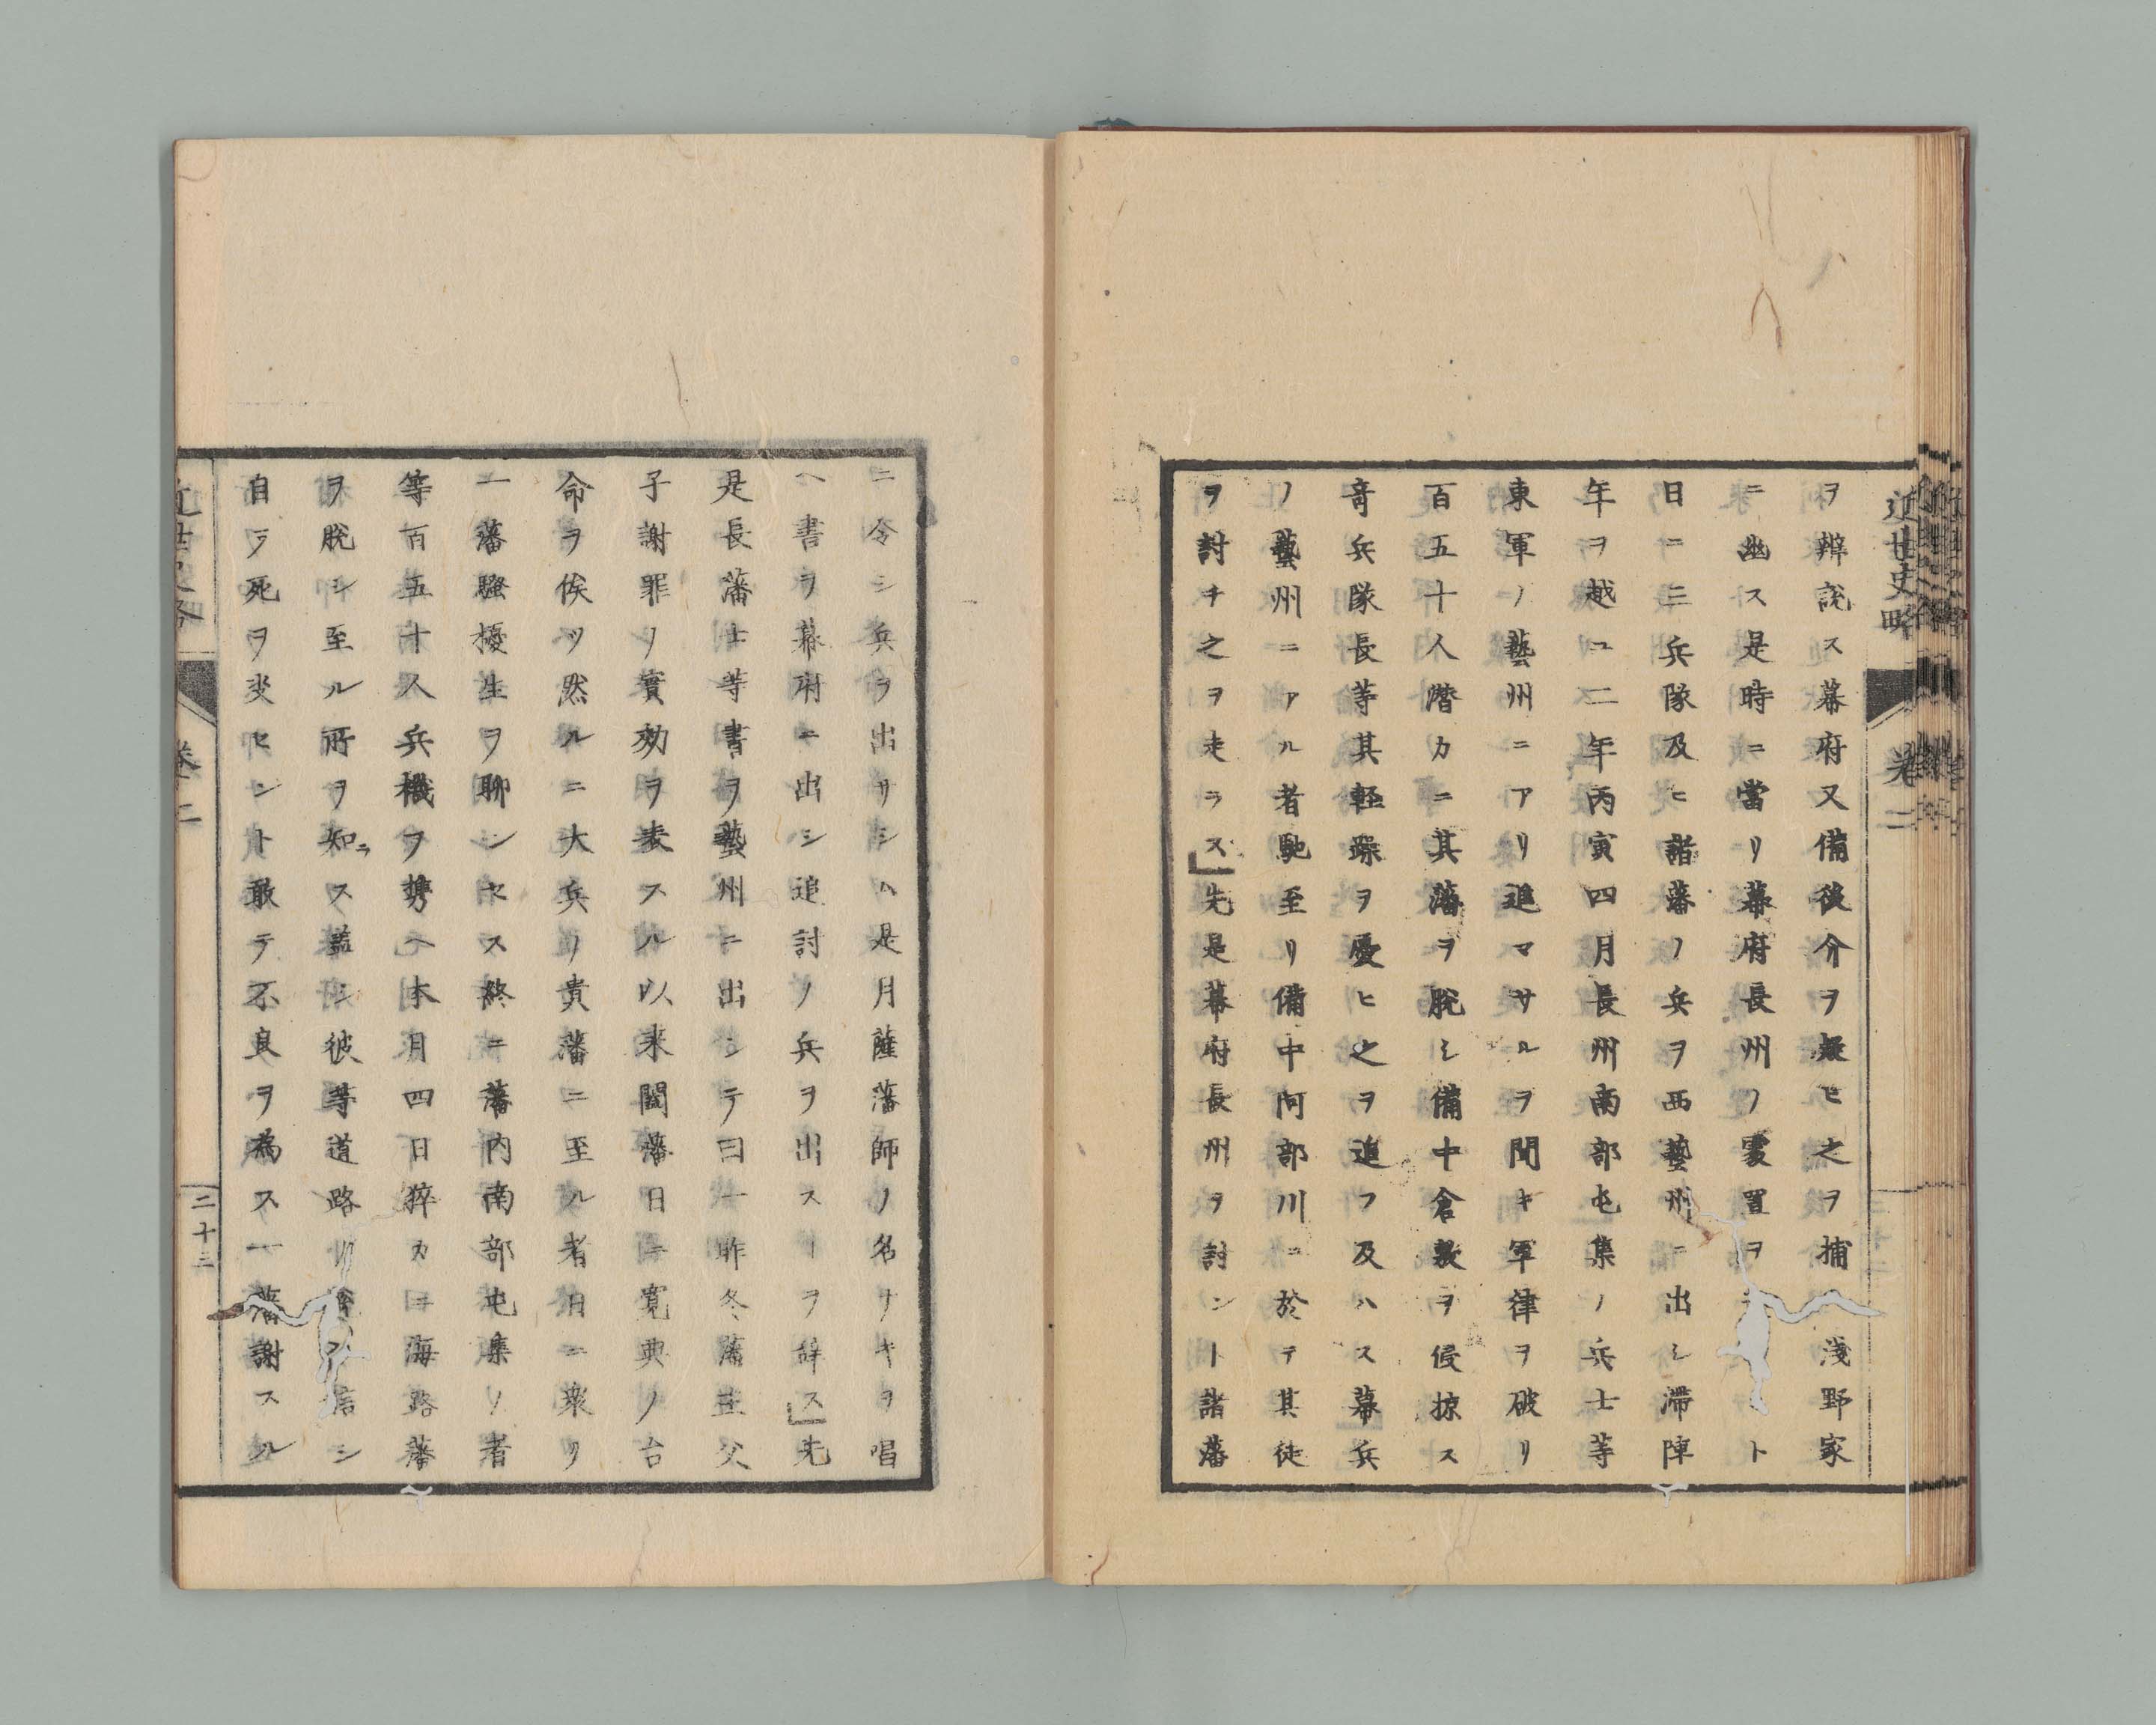 近世史略 卷二
ヲ辯説ス幕府又備後介ヲ疑ヒ之ヲ捕ヘ淺野家
ニ幽ス是時ニ當リ幕府長州ノ處置ヲ
日ニ三兵隊及ヒ諸藩ノ兵ヲ西藝州ニ出シ滞陣
年ヲ越ユ二年丙寅四月長州南部屯集ノ兵士等
東軍ノ藝州ニアリ進マサルヲ聞キ軍律ヲ破リ
百五十人潜カニ其藩ヲ脱シ備中倉敷ヲ侵掠ス
竒兵隊長等其軽躁ヲ憂ヒ之ヲ追フ及ハス幕兵
ノ藝州ニアル者馳至リ備中阿部川ニ於テ其徒
ヲ討チ之ヲ走ラス」先是幕府長州ヲ討ント諸藩
ニ令シ兵ヲ出サシム是月薩藩師ノ名ナキヲ唱
ヘ書ヲ幕府ニ出シ追討ノ兵ヲ出スヿヲ辞ス」先
是長藩士等書ヲ藝州ニ出シテ曰一昨冬藩主父
子謝罪ノ實効ヲ表スル以来闔藩日ニ寛典ノ台
命ヲ俟ツ然ルニ大兵ノ貴藩ニ至ル者日ニ衆リ
一藩騒擾生ヲ聊ンセス終ニ藩内南部屯集ノ者
等百五十人兵機ヲ携ヘ本月四日猝カニ海路藩
ヲ脱シ至ル所ヲ知ラス盖シ彼等道路ノ信シ
自ラ死ヲ決センヒト敢テ不良ヲ為ス一藩謝スル
近世史略 卷二 二十三